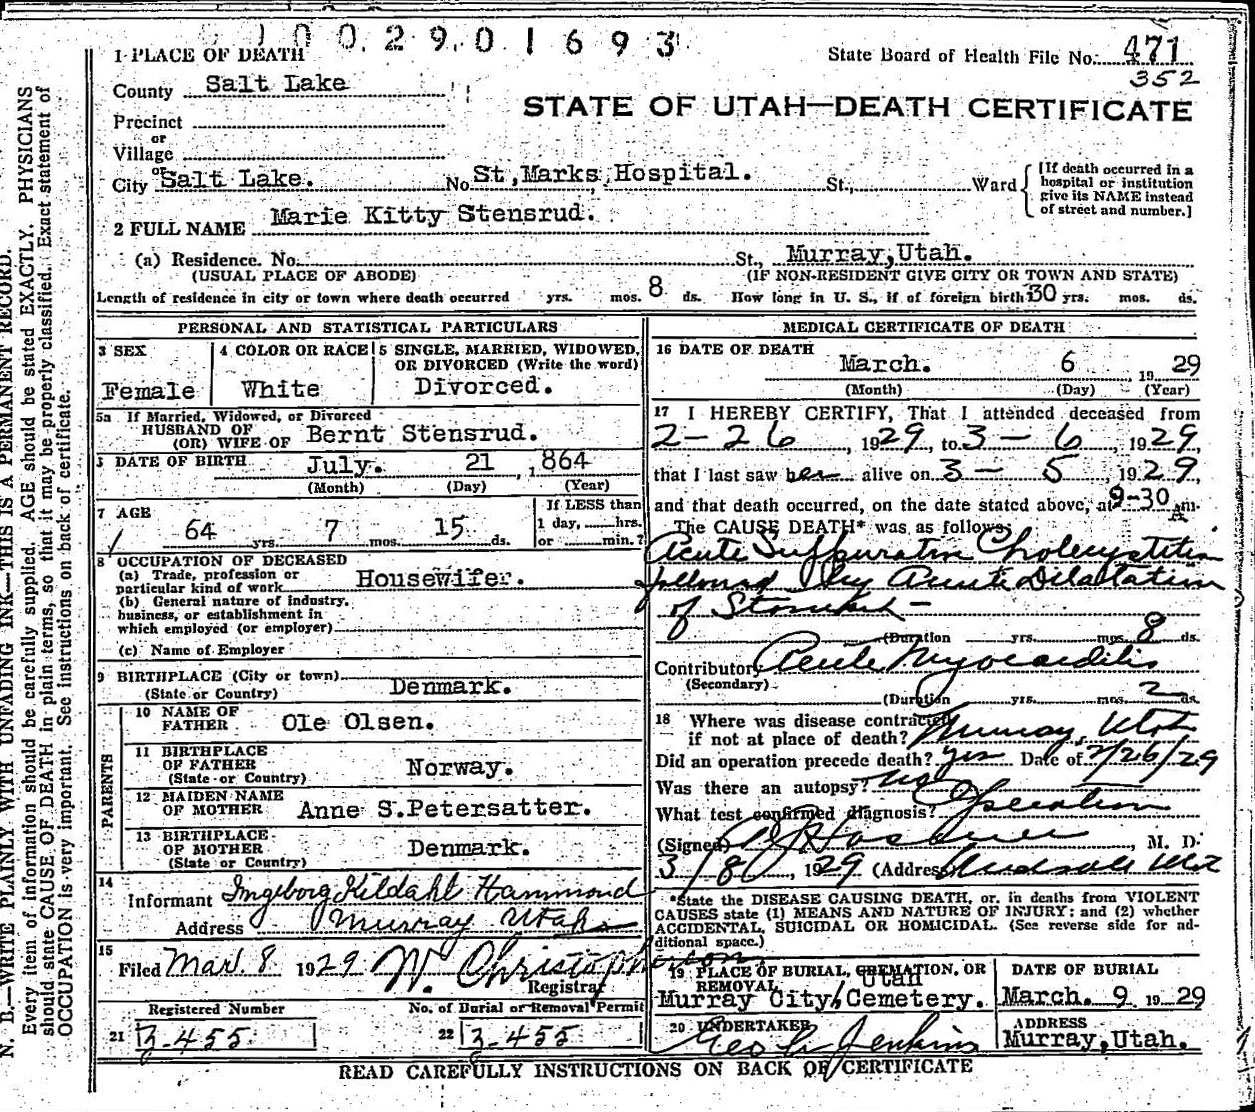 0 0 2 9 0 1 6 9 3
1 PLACE OF DEATH
State Board of Health File No. 471
352
County Salt Lake
STATE OF UTAH—DEATH CERTIFICATE
Precinct
or
Village
or
City Salt Lake. No. St,Marks Hospital. St., Ward
[If death occurred in a hospital or institution give its NAME instead of street and number.]
2 FULL NAME Marie Kitty Stensrud.
(a) Residence. No. St., Murray,Utah.
(USUAL PLACE OF ABODE) (IF NON-RESIDENT GIVE CITY OR TOWN AND STATE)
Length of residence in city or town where death occurred yrs. mos. 8 ds. How long in U. S., if of foreign birth 30 yrs. mos. ds.
PERSONAL AND STATISTICAL PARTICULARS
3 SEX
Female
4 COLOR OR RACE
White
5 SINGLE, MARRIED, WIDOWED, OR DIVORCED (Write the word)
Divorced.
5a If Married, Widowed, or Divorced
HUSBAND OF
(OR) WIFE OF Bernt Stensrud.
DATE OF BIRTH July. 21 ,1864
(Month) (Day) (Year)
7 AGE
64 yrs. 7 mos. 15 ds.
If LESS than
1 day, hrs.
or min.?
8 OCCUPATION OF DECEASED
(a) Trade, profession or
particular kind of work Housewifer.
(b) General nature of industry,
business, or establishment in
which employed (or employer)
(c) Name of Employer
9 BIRTHPLACE (City or town)
(State or Country) Denmark.
PARENTS
10 NAME OF
FATHER Ole Olsen.
11 BIRTHPLACE
OF FATHER
(State or Country) Norway.
12 MAIDEN NAME
OF MOTHER Anne S.Petersatter.
13 BIRTHPLACE
OF MOTHER
(State or Country) Denmark.
14
Informant Ingeborg Kildahl Hammond
Address Murray Utah
15
Filed Mar. 8 1929 W. Christopherson
Registrar
Registered Number No. of Burial or Removal Permit
21 3-455 22 3-455
MEDICAL CERTIFICATE OF DEATH
16 DATE OF DEATH
March. 6 19 29
(Month) (Day) (Year)
17 I HEREBY CERTIFY, That I attended deceased from
2-26, 1929, to 3-6, 1929,
that I last saw her alive on 3-5, 1929,
and that death occurred, on the date stated above, at 9-30 A m.
The CAUSE DEATH* was as follows:
Acute Suppurative Cholecystitis
followed by Acute Dilatation
of Stomach -
(Duration yrs. mos. 8 ds.
Contributory Acute Myocarditis
(Secondary)
(Duration yrs. mos. 2 ds.
18 Where was disease contracted
if not at place of death? Murray, Utah
Did an operation precede death? yes Date of 2/26/29
Was there an autopsy? no
What test confirmed diagnosis? Operation
(Signed) , M. D.
3/8, 1929 (Address)
*State the DISEASE CAUSING DEATH, or, in deaths from VIOLENT
CAUSES state (1) MEANS AND NATURE OF INJURY; and (2) whether
ACCIDENTAL, SUICIDAL OR HOMICIDAL. (See reverse side for ad-
ditional space.)
19 PLACE OF BURIAL, CREMATION, OR
REMOVAL Utah
Murray City, Cemetery.
DATE OF BURIAL
March. 9 19 29
20 UNDERTAKER
Geo Jenkins
ADDRESS
Murray,Utah.
READ CAREFULLY INSTRUCTIONS ON BACK OF CERTIFICATE
N. B.—WRITE PLAINLY WITH UNFADING INK—THIS IS A PERMANENT RECORD.
Every item of information should be carefully supplied. AGE should be stated EXACTLY. PHYSICIANS
should state CAUSE OF DEATH in plain terms, so that it may be properly classified. Exact statement of
OCCUPATION is very important. See instructions on back of certificate.